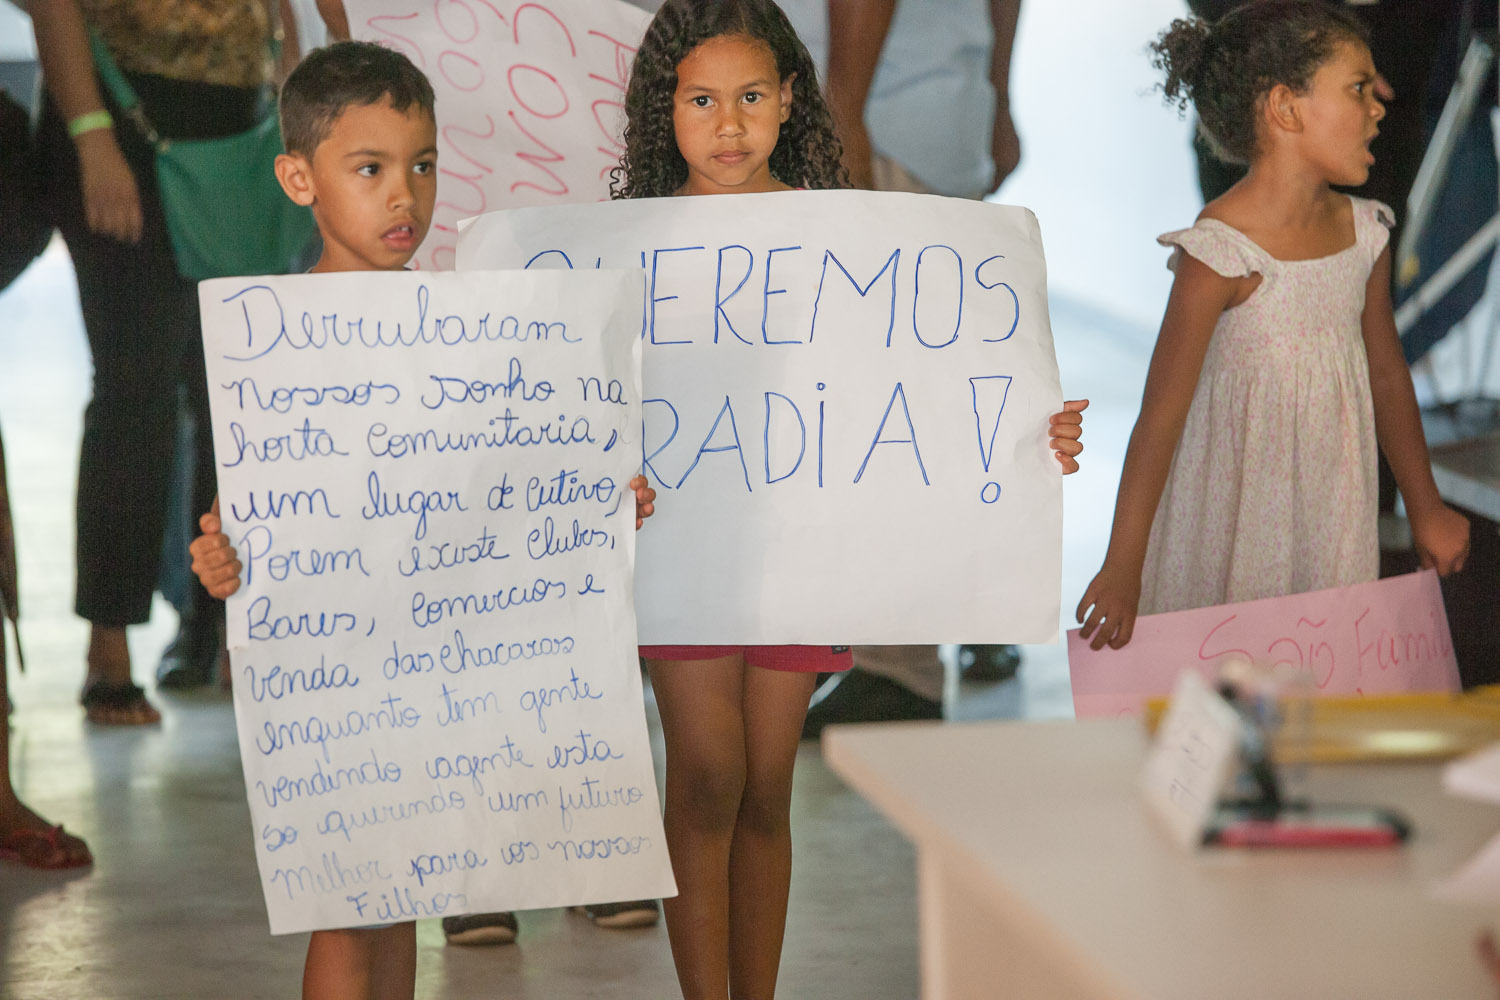 Derrubaram
nossos sonho na
horta comunitaria,
um lugar de cutivo,
Porem existe clubes,
Bares, comercios e
venda das chacaras
enquanto tem gente
vendendo agente esta
so querendo um futuro
melhor para os nossos
Filhos
QUEREMOS
RADiA!
COM
São Famil